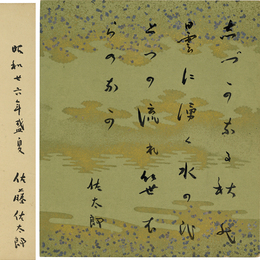 志づかなる秋の
曇に湧く水のひ
とつの流れ
らのなか
佐太郎
昭和廿六年盛夏 佐藤佐太郎